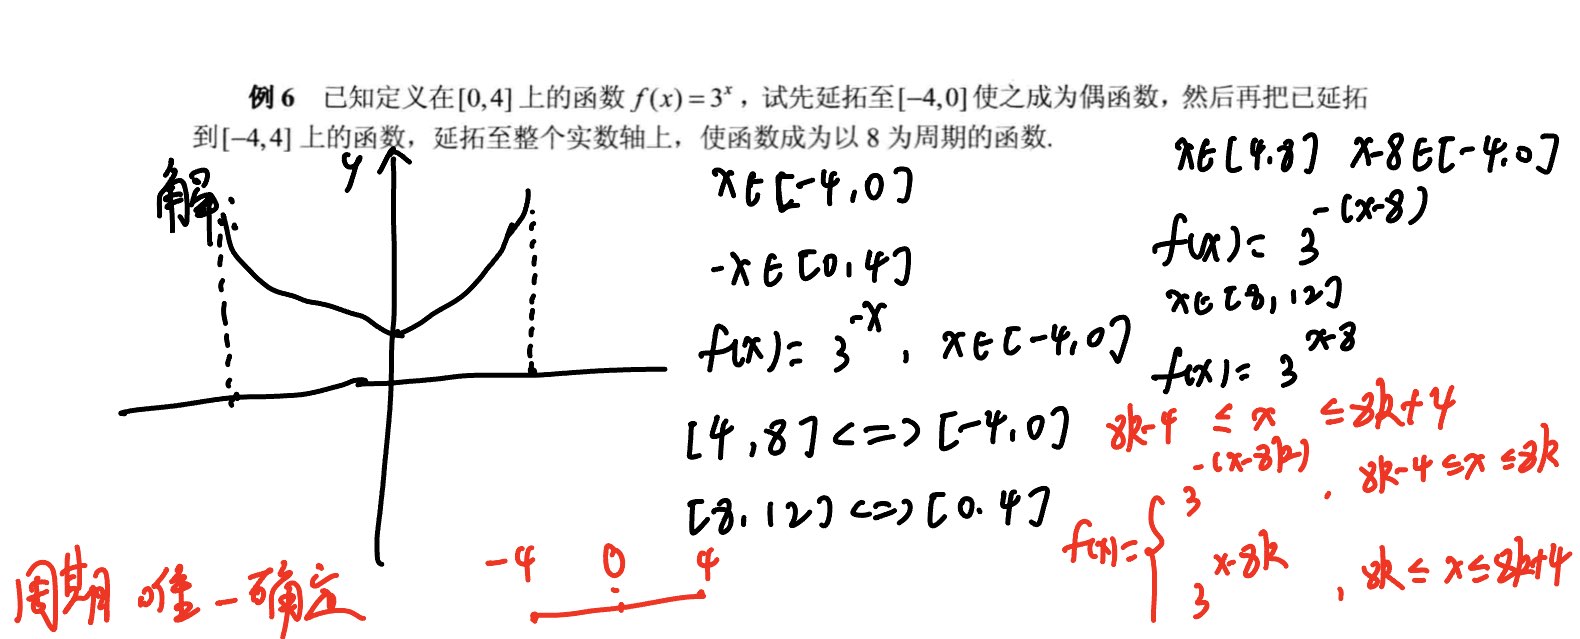 例6 已知定义在[0,4]上的函数 f(x)=3^x，试先延拓至[−4,0]使之成为偶函数，然后再把已延拓
到[−4,4]上的函数，延拓至整个实数轴上，使函数成为以8为周期的函数.
解
y
x∈[-4,0]
-x∈[0,4]
f(x)=3^{-x}, x∈[-4,0]
[4,8]<=>[-4,0]
[8,12]<=>[0.4]
x∈[4,8] x-8∈[-4,0]
f(x)=3^{-(x-8)}
x∈[8,12]
f(x)=3^{x-8}
8k-4≤x≤8k+4
f(x)={3^{-(x-8k)}, 8k-4≤x≤8k
3^{x-8k}, 8k≤x≤8k+4
-4 0 4
周期唯一确定